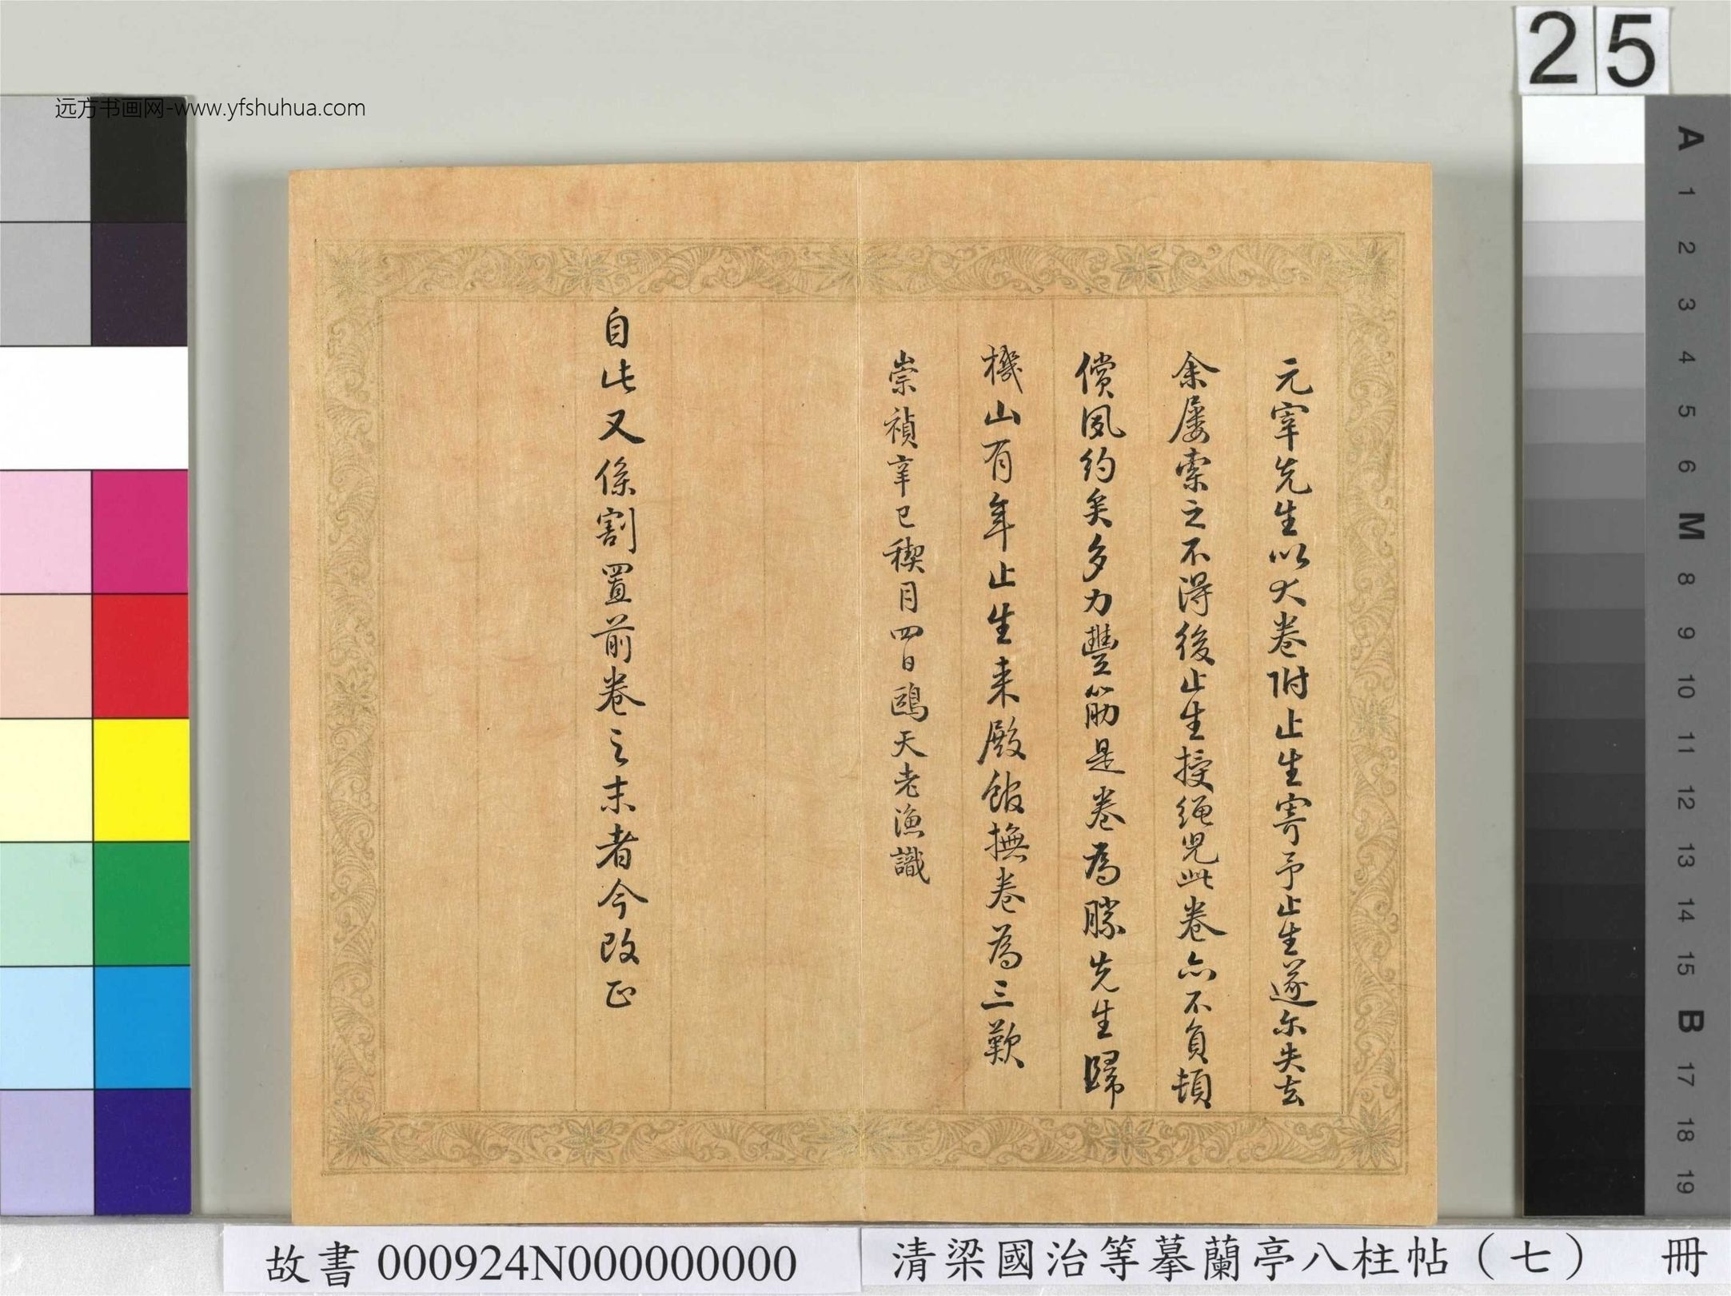 25
远方书画网-www.yfshuhua.com
元宰先生以大卷附止生寄予止生遂尔失去
余屡索之不得後止生授绳兒此卷亦不負頓
償夙約矣多力豐筋是卷為勝先生歸
機山有年止生来殿館撫卷為三歎
崇禎辛巳稧月四日鷗天老漁識
自此又係割置前卷之末者今改正
A
1
2
3
4
5
6
M
8
9
10
11
12
13
14
15
B
17
18
19
故書 000924N000000000
清梁國治等摹蘭亭八柱帖（七） 冊